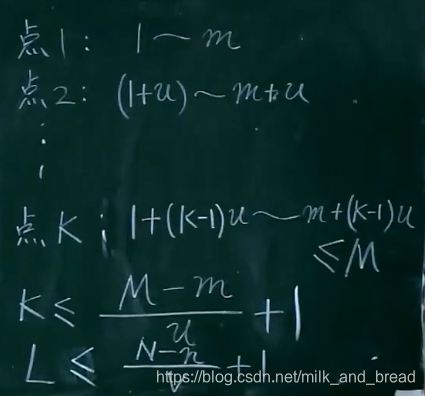 点1: 1~m
点2: (1+u)~m+u
⋮
点K: 1+(K-1)u~m+(K-1)u
≤M
K≤ \frac{M-m}{u}+1
L≤ \frac{N-n}{v}+1
https://blog.csdn.net/milk_and_bread